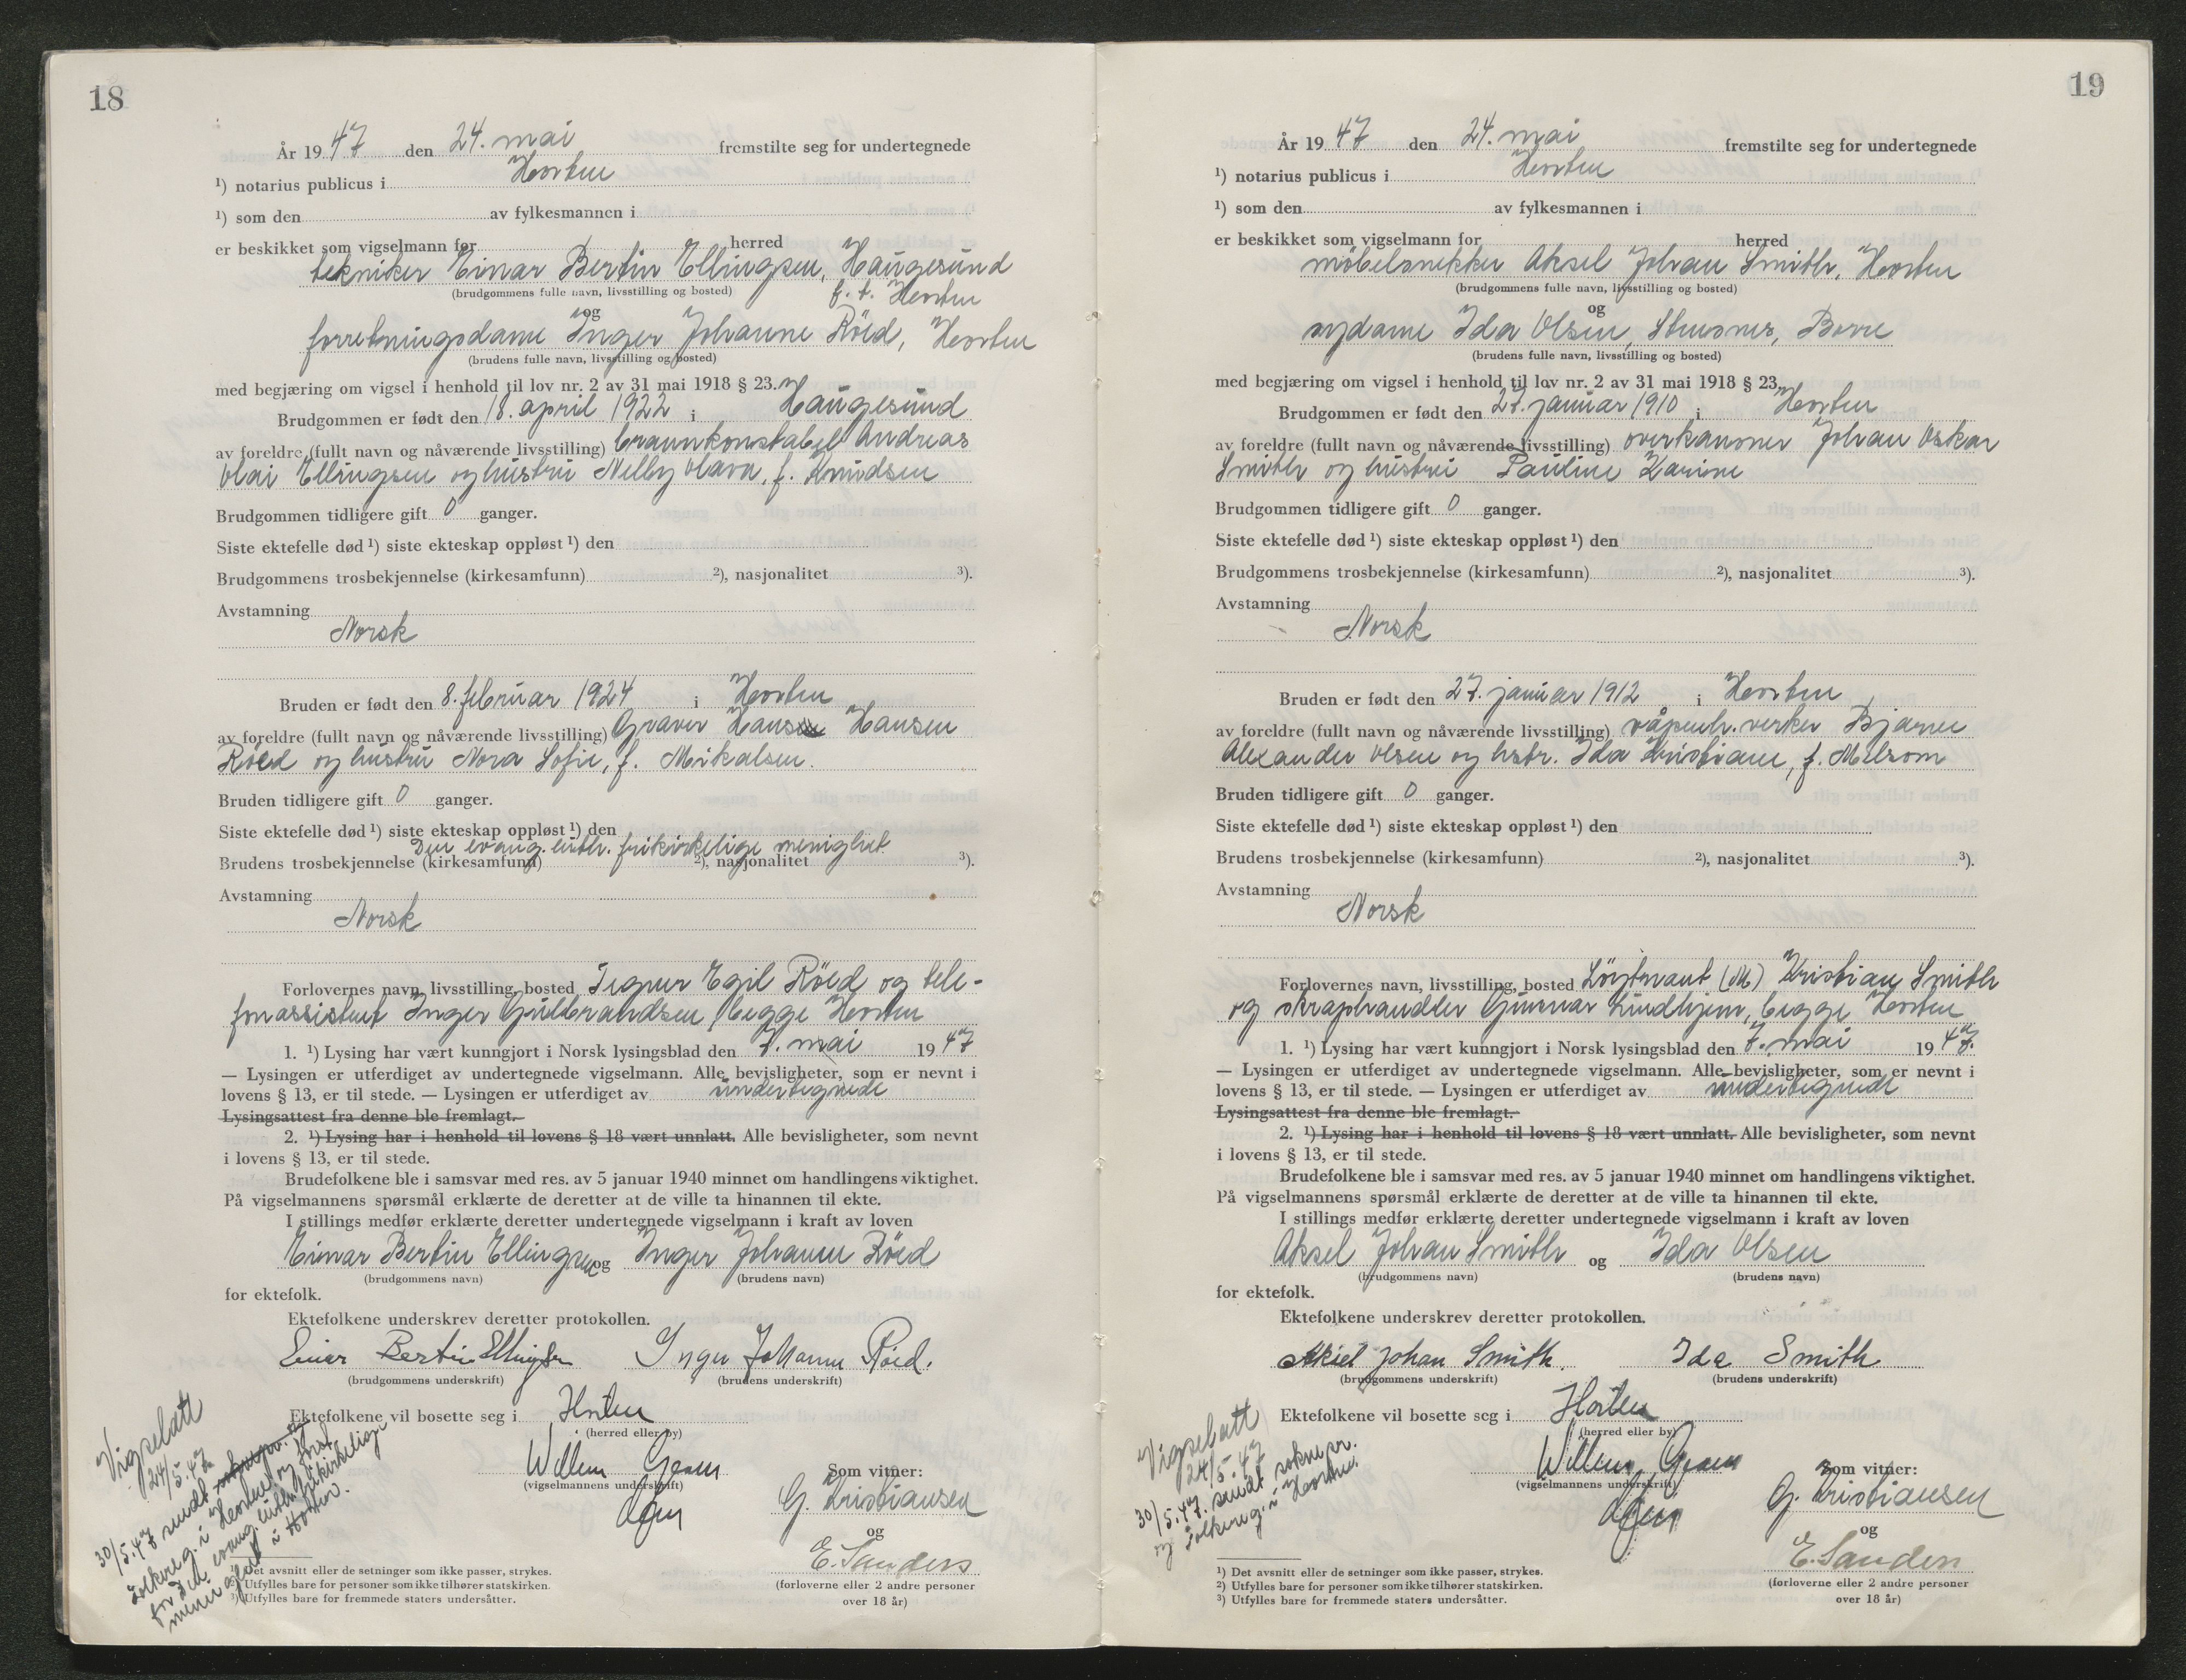 18
År 19 47 den 24. mai fremstilte seg for undertegnede
¹) notarius publicus i Horten
¹) som den av fylkesmannen i
er beskikket som vigselmann for herred
tekniker Einar Bertin Ellingsen, Haugesund
(brudgommens fulle navn, livsstilling og bosted) f. t. Horten
og
forretningsdame Inger Johanne Röed, Horten
(brudens fulle navn, livsstilling og bosted)
med begjæring om vigsel i henhold til lov nr. 2 av 31 mai 1918 § 23.
Brudgommen er født den 18. april 1922 i Haugesund
av foreldre (fullt navn og nåværende livsstilling) brannkonstabel Andreas
Olai Ellingsen og hustru Nelly Olava, f. Knudsen
Brudgommen tidligere gift 0 ganger.
Siste ektefelle død ¹) siste ekteskap oppløst ¹) den
Brudgommens trosbekjennelse (kirkesamfunn) ²), nasjonalitet ³).
Avstamning
Norsk
Bruden er født den 8. februar 1924 i Horten
av foreldre (fullt navn og nåværende livsstilling) Graver Hans Hansen
Röed og hustru Nora Sofie, f. Mikalsen.
Bruden tidligere gift 0 ganger.
Siste ektefelle død ¹) siste ekteskap oppløst ¹) den
Den evang. luth. frikirkelige menighet
Brudens trosbekjennelse (kirkesamfunn) ²), nasjonalitet ³).
Avstamning
Norsk
Forlovernes navn, livsstilling, bosted Tegner Egil Röed og tele-
fonassistent Inger Gulbrandsen, begge Horten
1. ¹) Lysing har vært kunngjort i Norsk lysingsblad den 7. mai 19 47
— Lysingen er utferdiget av undertegnede vigselmann. Alle bevisligheter, som er nevnt i
lovens § 13, er til stede. — Lysingen er utferdiget av undertegnede
Lysingsattest fra denne ble fremlagt.
2. ¹) Lysing har i henhold til lovens § 18 vært unnlatt. Alle bevisligheter, som nevnt
i lovens § 13, er til stede.
Brudefolkene ble i samsvar med res. av 5 januar 1940 minnet om handlingens viktighet.
På vigselmannens spørsmål erklærte de deretter at de ville ta hinannen til ekte.
I stillings medfør erklærte deretter undertegnede vigselmann i kraft av loven
Einar Bertin Ellingsen og Inger Johanne Röed
(brudgommens navn) (brudens navn)
for ektefolk.
Ektefolkene underskrev deretter protokollen.
Einar Bertin Ellingsen Inger Johanne Röed.
(brudgommens underskrift) (brudens underskrift)
Ektefolkene vil bosette seg i Horten
(herred eller by)
Som vitner:
(vigselmannens underskrift)
G. Kristiansen
og
E. Sanders
(forloverne eller 2 andre personer
over 18 år)
Vigselatt
24/5.47
30/5.47 sendt soknepr. og
folkereg. i Horten og forst.
for Den evang. luth. frikirkelige
menighet i Horten.
¹) Det avsnitt eller de setninger som ikke passer, strykes.
²) Utfylles bare for personer som ikke tilhører statskirken.
³) Utfylles bare for fremmede staters undersåtter.
19
År 19 47 den 24. mai fremstilte seg for undertegnede
¹) notarius publicus i Horten
¹) som den av fylkesmannen i
er beskikket som vigselmann for herred
møbelsnekker Aksel Johan Smith, Horten
(brudgommens fulle navn, livsstilling og bosted)
og
sydame Ida Olsen, Stensnes, Borre
(brudens fulle navn, livsstilling og bosted)
med begjæring om vigsel i henhold til lov nr. 2 av 31 mai 1918 § 23.
Brudgommen er født den 27. januar 1910 i Horten
av foreldre (fullt navn og nåværende livsstilling) overkanoner Johan Oskar
Smith og hustru Pauline Karine
Brudgommen tidligere gift 0 ganger.
Siste ektefelle død ¹) siste ekteskap oppløst ¹) den
Brudgommens trosbekjennelse (kirkesamfunn) ²), nasjonalitet ³).
Avstamning
Norsk
Bruden er født den 27. januar 1912 i Horten
av foreldre (fullt navn og nåværende livsstilling) våpenh.verker Bjarne
Alexander Olsen og hstr. Ida Kristiane, f. Melsom
Bruden tidligere gift 0 ganger.
Siste ektefelle død ¹) siste ekteskap oppløst ¹) den
Brudens trosbekjennelse (kirkesamfunn) ²), nasjonalitet ³).
Avstamning
Norsk
Forlovernes navn, livsstilling, bosted Löytnant (M) Kristian Smith
og skraphandler Gunnar Lindhjem, begge Horten
1. ¹) Lysing har vært kunngjort i Norsk lysingsblad den 7. mai 19 47.
— Lysingen er utferdiget av undertegnede vigselmann. Alle bevisligheter, som er nevnt i
lovens § 13, er til stede. — Lysingen er utferdiget av undertegnede
Lysingsattest fra denne ble fremlagt.
2. ¹) Lysing har i henhold til lovens § 18 vært unnlatt. Alle bevisligheter, som nevnt
i lovens § 13, er til stede.
Brudefolkene ble i samsvar med res. av 5 januar 1940 minnet om handlingens viktighet.
På vigselmannens spørsmål erklærte de deretter at de ville ta hinannen til ekte.
I stillings medfør erklærte deretter undertegnede vigselmann i kraft av loven
Aksel Johan Smith og Ida Olsen
(brudgommens navn) (brudens navn)
for ektefolk.
Ektefolkene underskrev deretter protokollen.
Aksel Johan Smith. Ida Smith
(brudgommens underskrift) (brudens underskrift)
Ektefolkene vil bosette seg i Horten
(herred eller by)
Som vitner:
(vigselmannens underskrift)
G. Kristiansen
og
E. Sanders
(forloverne eller 2 andre personer
over 18 år)
Vigselatt
24/5.47
30/5.47. sendt soknepr.
og folkereg. i Horten.
¹) Det avsnitt eller de setninger som ikke passer, strykes.
²) Utfylles bare for personer som ikke tilhører statskirken.
³) Utfylles bare for fremmede staters undersåtter.